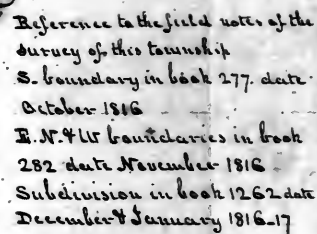 Reference to the field notes of the
survey of this township
S. boundary in book 277. date
October 1816
E. N. & W boundaries in book
282 date November 1816
Subdivision in book 1262 date
December & January 1816-17